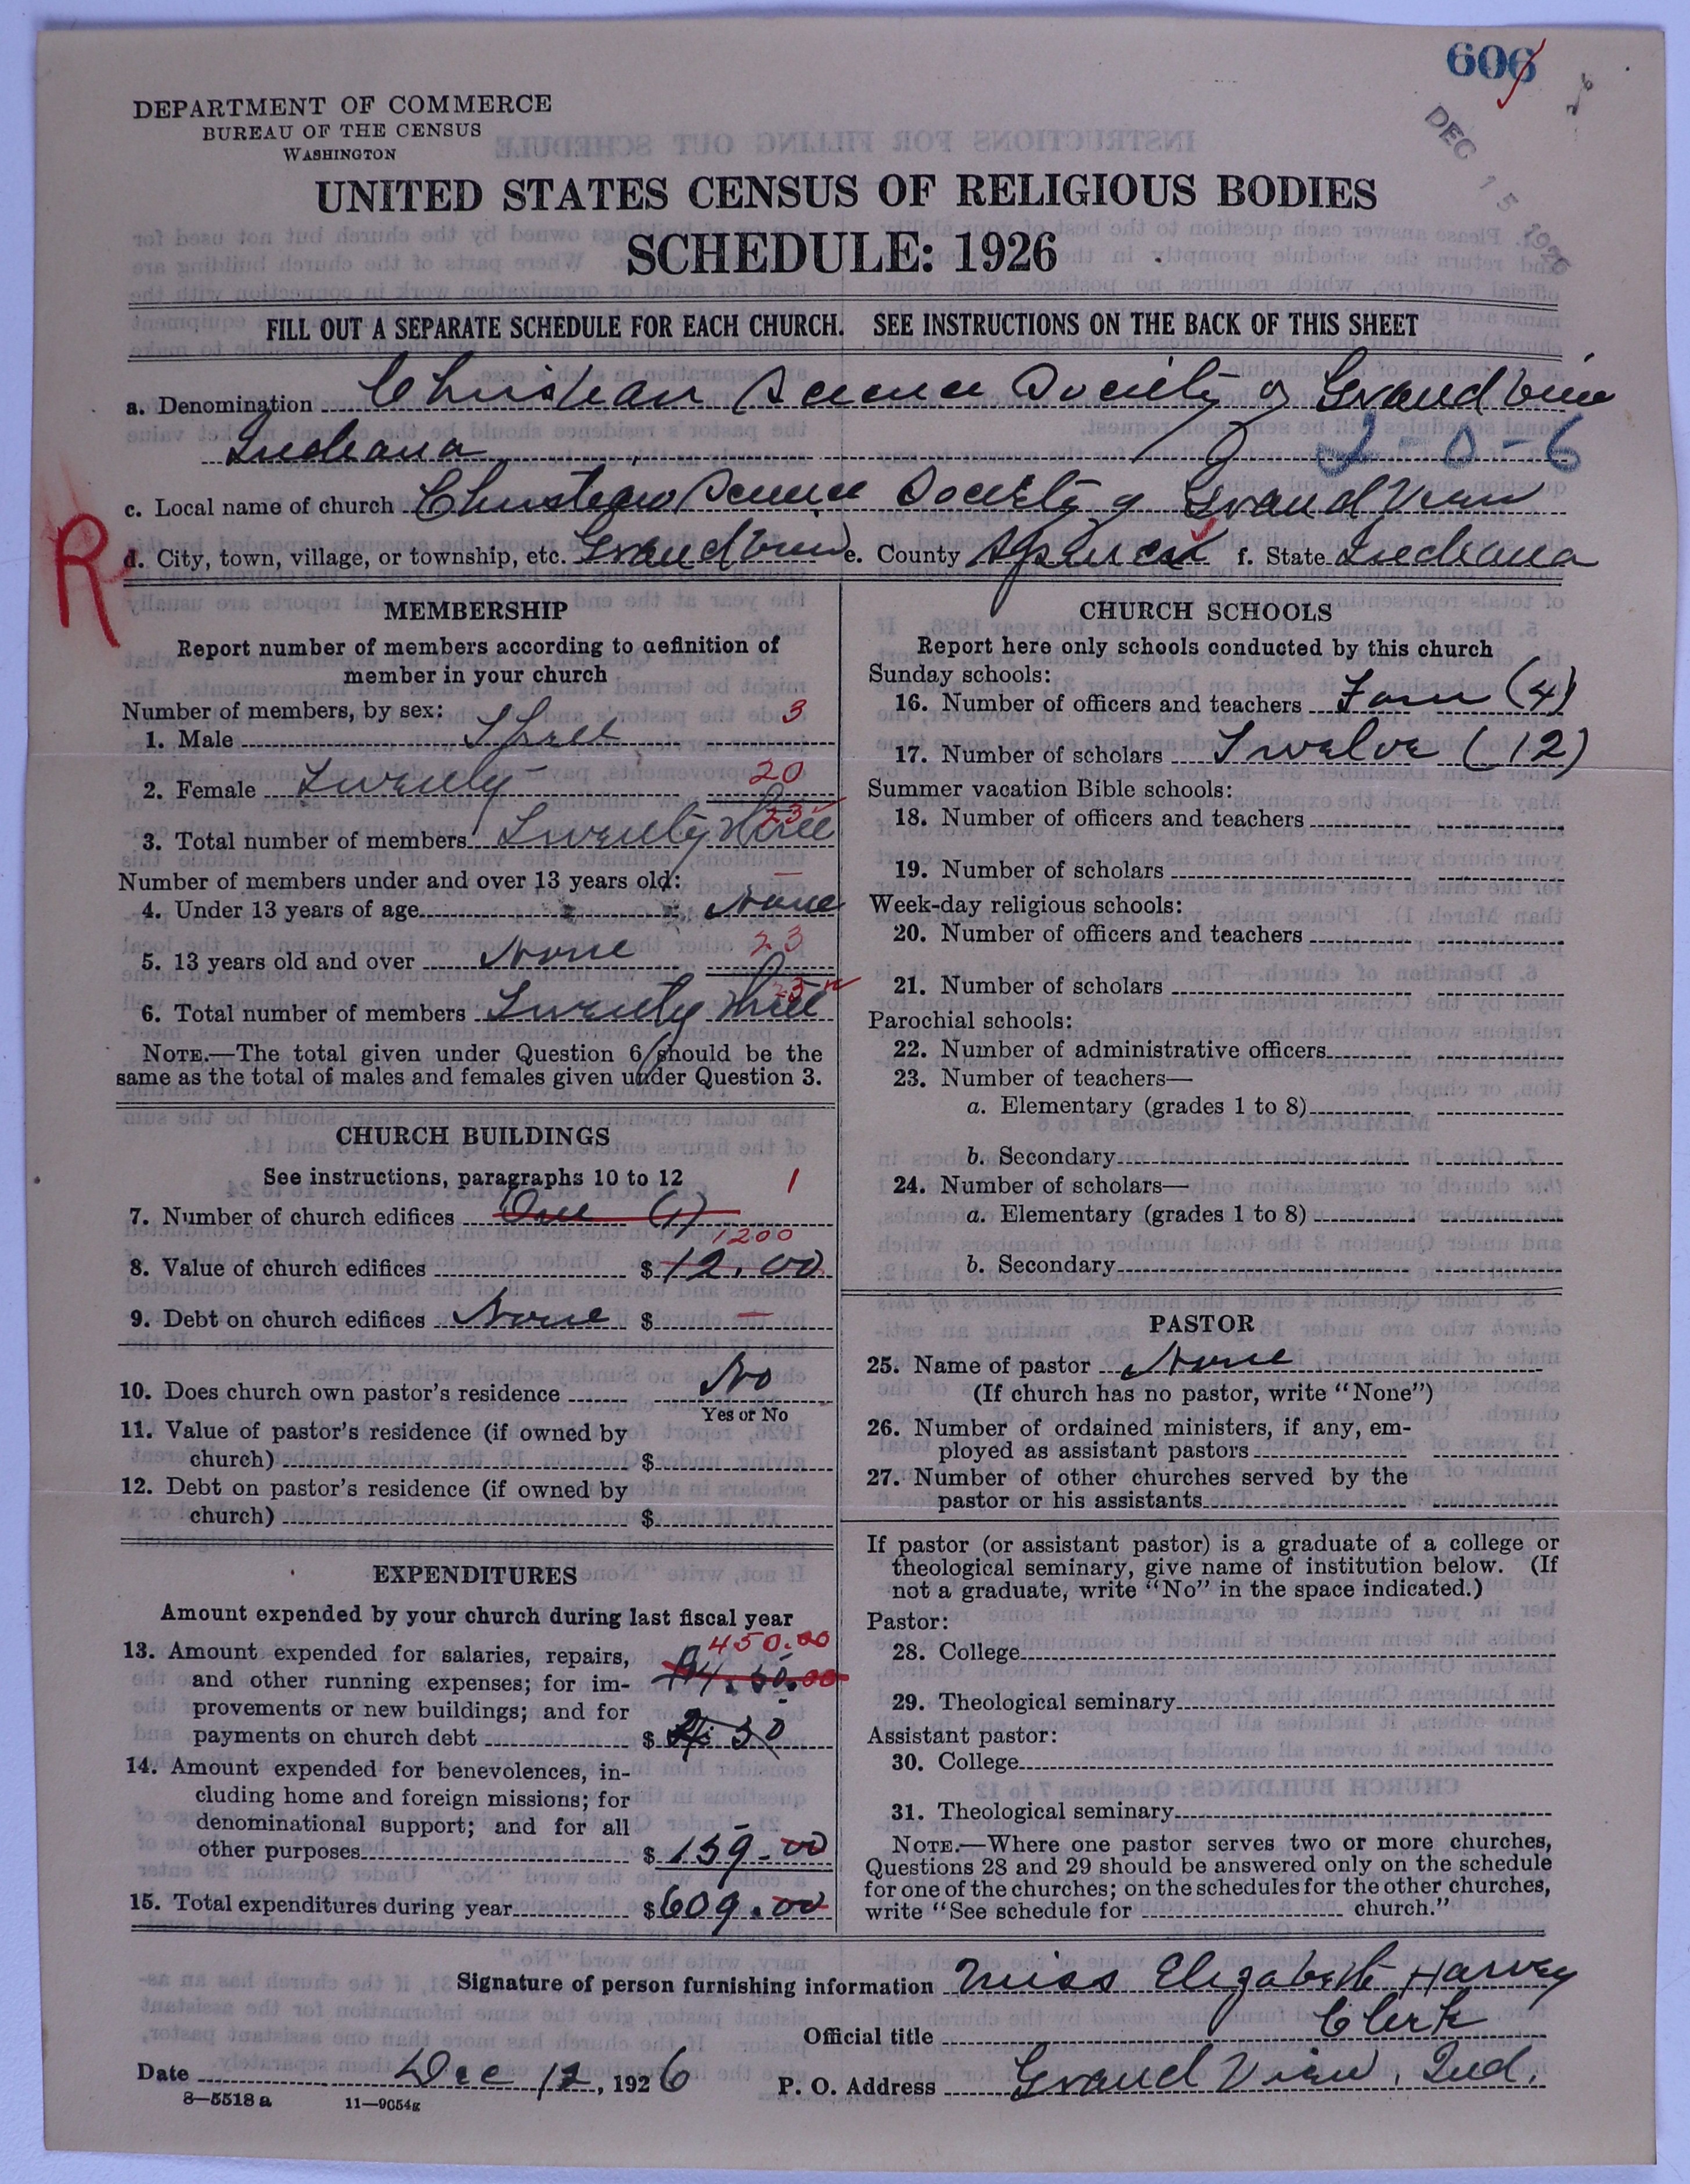 606
DEC 15 1926
DEPARTMENT OF COMMERCE
BUREAU OF THE CENSUS
WASHINGTON
UNITED STATES CENSUS OF RELIGIOUS BODIES
SCHEDULE: 1926
FILL OUT A SEPARATE SCHEDULE FOR EACH CHURCH. SEE INSTRUCTIONS ON THE BACK OF THIS SHEET
a. Denomination Christian Science Society of Grandview
Indiana 2-0-6
c. Local name of church Christian Science Society of Grand View
R
d. City, town, village, or township, etc. Grandview e. County Spencer f. State Indiana
MEMBERSHIP
Report number of members according to definition of
member in your church
Number of members, by sex:
1. Male Three 3
2. Female Twenty 20
3. Total number of members Twenty three 23
Number of members under and over 13 years old:
4. Under 13 years of age None —
5. 13 years old and over None 23
6. Total number of members Twenty three 23
NOTE.—The total given under Question 6 should be the
same as the total of males and females given under Question 3.
CHURCH BUILDINGS
See instructions, paragraphs 10 to 12
7. Number of church edifices One (1) 1
8. Value of church edifices $ 12.00 1200
9. Debt on church edifices None $ —
10. Does church own pastor's residence No
Yes or No
11. Value of pastor's residence (if owned by
church) $
12. Debt on pastor's residence (if owned by
church) $
EXPENDITURES
Amount expended by your church during last fiscal year
13. Amount expended for salaries, repairs, 450.00
and other running expenses; for im-
provements or new buildings; and for
payments on church debt $
14. Amount expended for benevolences, in-
cluding home and foreign missions; for
denominational support; and for all
other purposes $ 159.00
15. Total expenditures during year $ 609.00
CHURCH SCHOOLS
Report here only schools conducted by this church
Sunday schools:
16. Number of officers and teachers Four (4)
17. Number of scholars Twelve (12)
Summer vacation Bible schools:
18. Number of officers and teachers
19. Number of scholars
Week-day religious schools:
20. Number of officers and teachers
21. Number of scholars
Parochial schools:
22. Number of administrative officers
23. Number of teachers—
a. Elementary (grades 1 to 8)
b. Secondary
24. Number of scholars—
a. Elementary (grades 1 to 8)
b. Secondary
PASTOR
25. Name of pastor None
(If church has no pastor, write "None")
26. Number of ordained ministers, if any, em-
ployed as assistant pastors
27. Number of other churches served by the
pastor or his assistants
If pastor (or assistant pastor) is a graduate of a college or
theological seminary, give name of institution below. (If
not a graduate, write "No" in the space indicated.)
Pastor:
28. College
29. Theological seminary
Assistant pastor:
30. College
31. Theological seminary
NOTE.—Where one pastor serves two or more churches,
Questions 28 and 29 should be answered only on the schedule
for one of the churches; on the schedules for the other churches,
write "See schedule for church."
Signature of person furnishing information Miss Elizabeth Harvey
Official title Clerk
Date Dec 12, 1926 P. O. Address Grand View, Ind.
8—5518 a 11—9054g